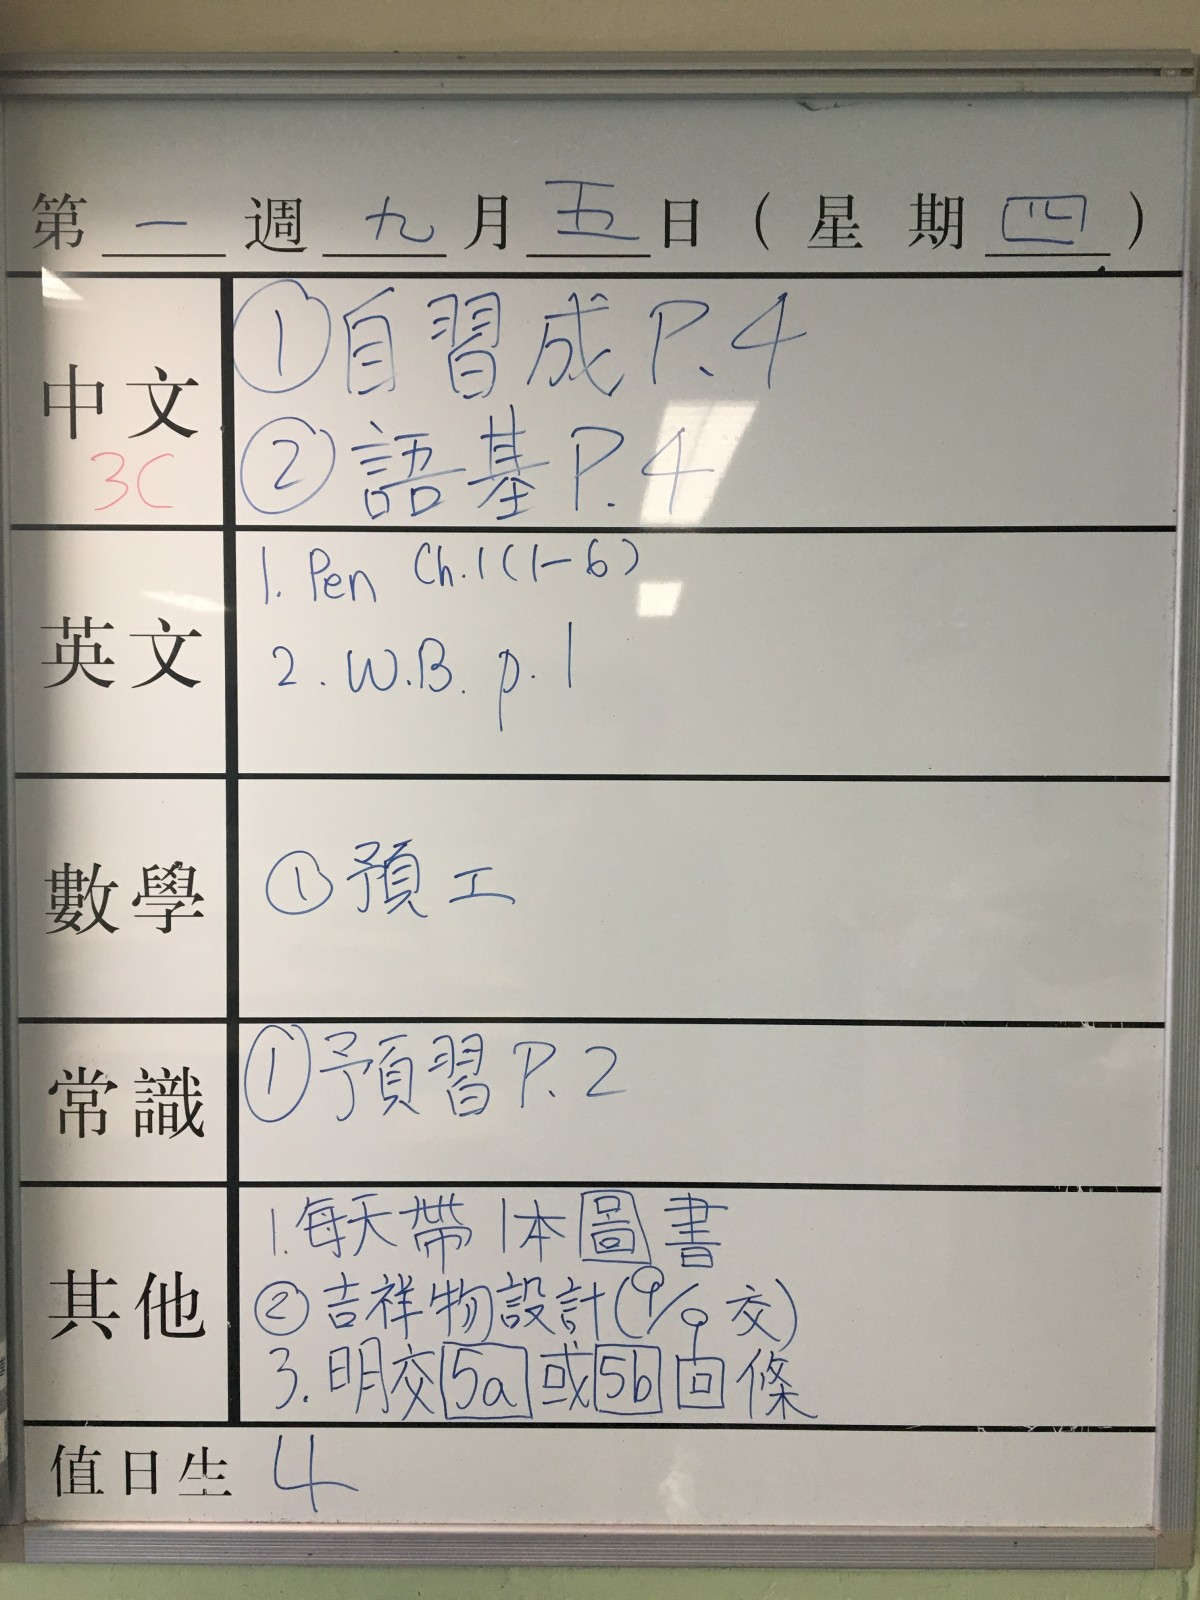 第一週九月五日(星期四)
中文
3C
①自習成P.4
②語基P.4
英文
1. Pen Ch.1(1-6)
2. W.B. p.1
數學
①預工
常識
①預習P.2
其他
1.每天帶1本圖書
②吉祥物設計(9/9交)
3.明交5a或5b回條
值日生 4